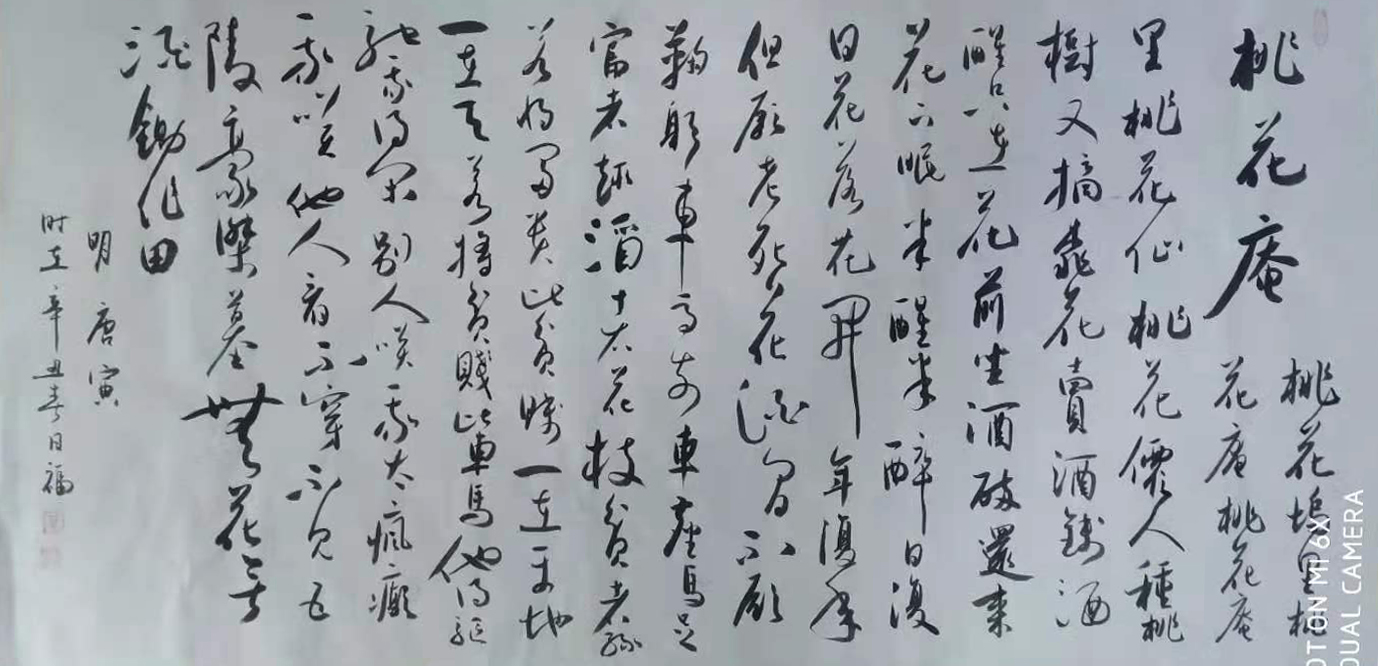 桃花庵
桃花塢里桃
花庵桃花庵
里桃花仙桃花僊人種桃
樹又摘桃花賣酒錢酒
醒只在花前坐酒醉還来
花下眠半醒半醉日復
日花落花開年復年
但願老死花酒間不願
鞠躬車馬前車塵馬足
富者趣酒花枝貧者緣
若将富贵比贫贱一在平地
一在天若將貧賤比車馬他得驅
馳我得閑別人笑我太瘋癲
我笑他人看不穿不見五
陵豪傑墓無花無
酒鋤作田
明唐寅
时在辛丑春日福
OT ON MI 6X
DUAL CAMERA